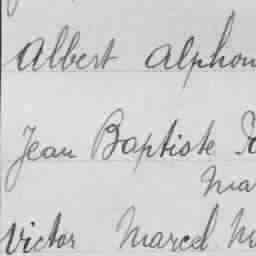 Albert Alphon
Jean Baptiste
Mar
Victor Marcel M